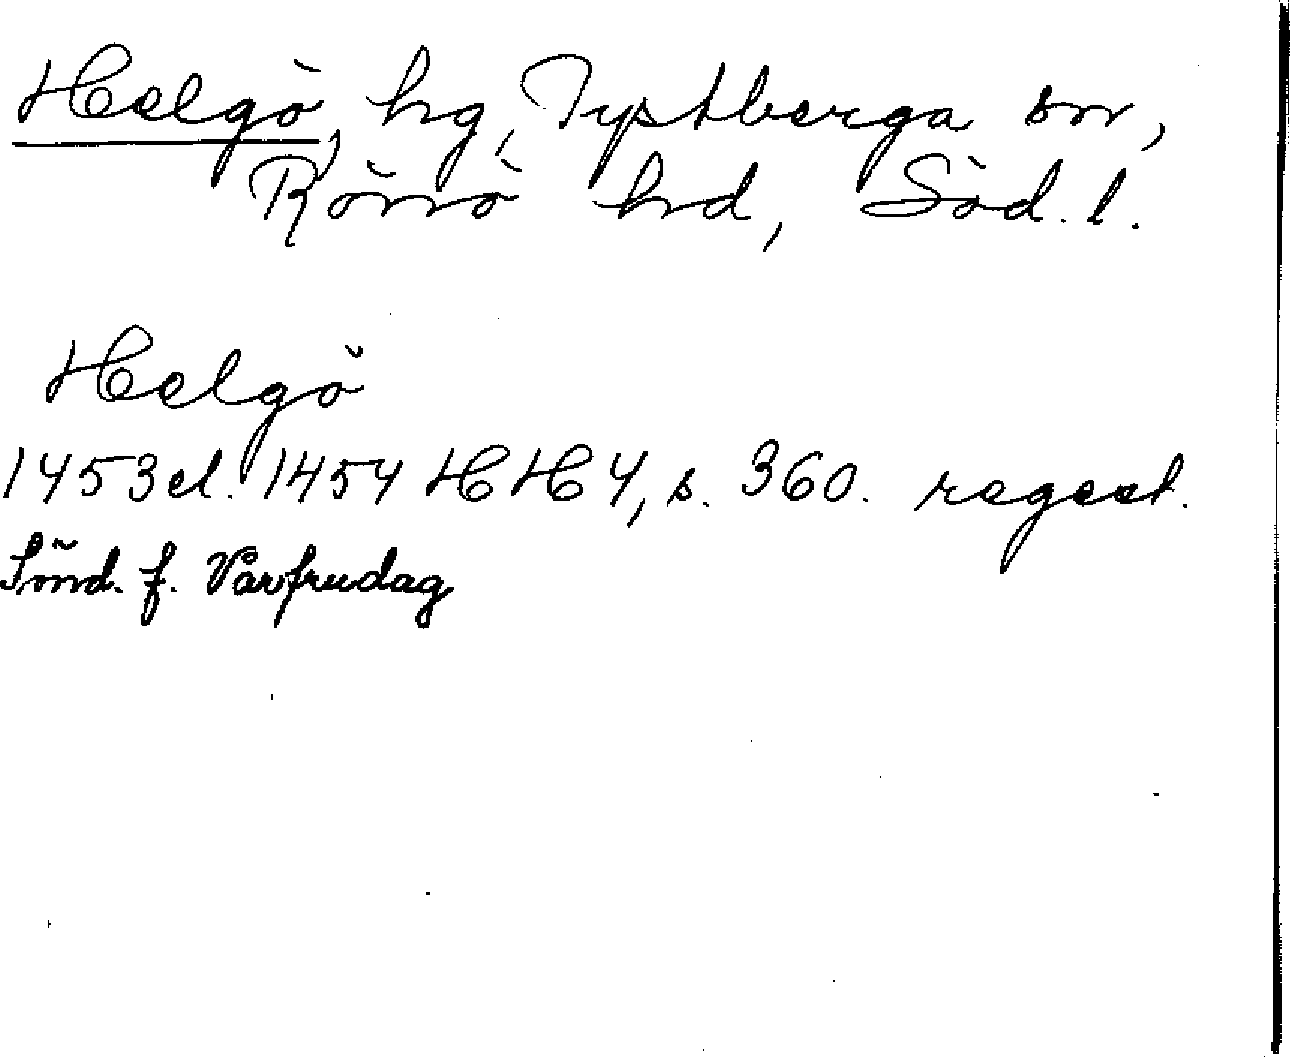 Helgö, hg, Tystberga sn,
Rönö hd, Söd. l.
Helgö
1453 el. 1454 HH 4, s. 360. regest.
Sönd. f. Vårfrudag